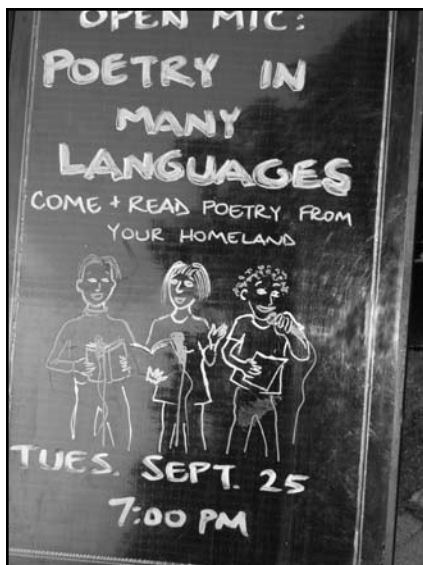 OPEN MIC:
POETRY IN
MANY
LANGUAGES
COME + READ POETRY FROM
YOUR HOMELAND
TUES. SEPT. 25
7:00 PM